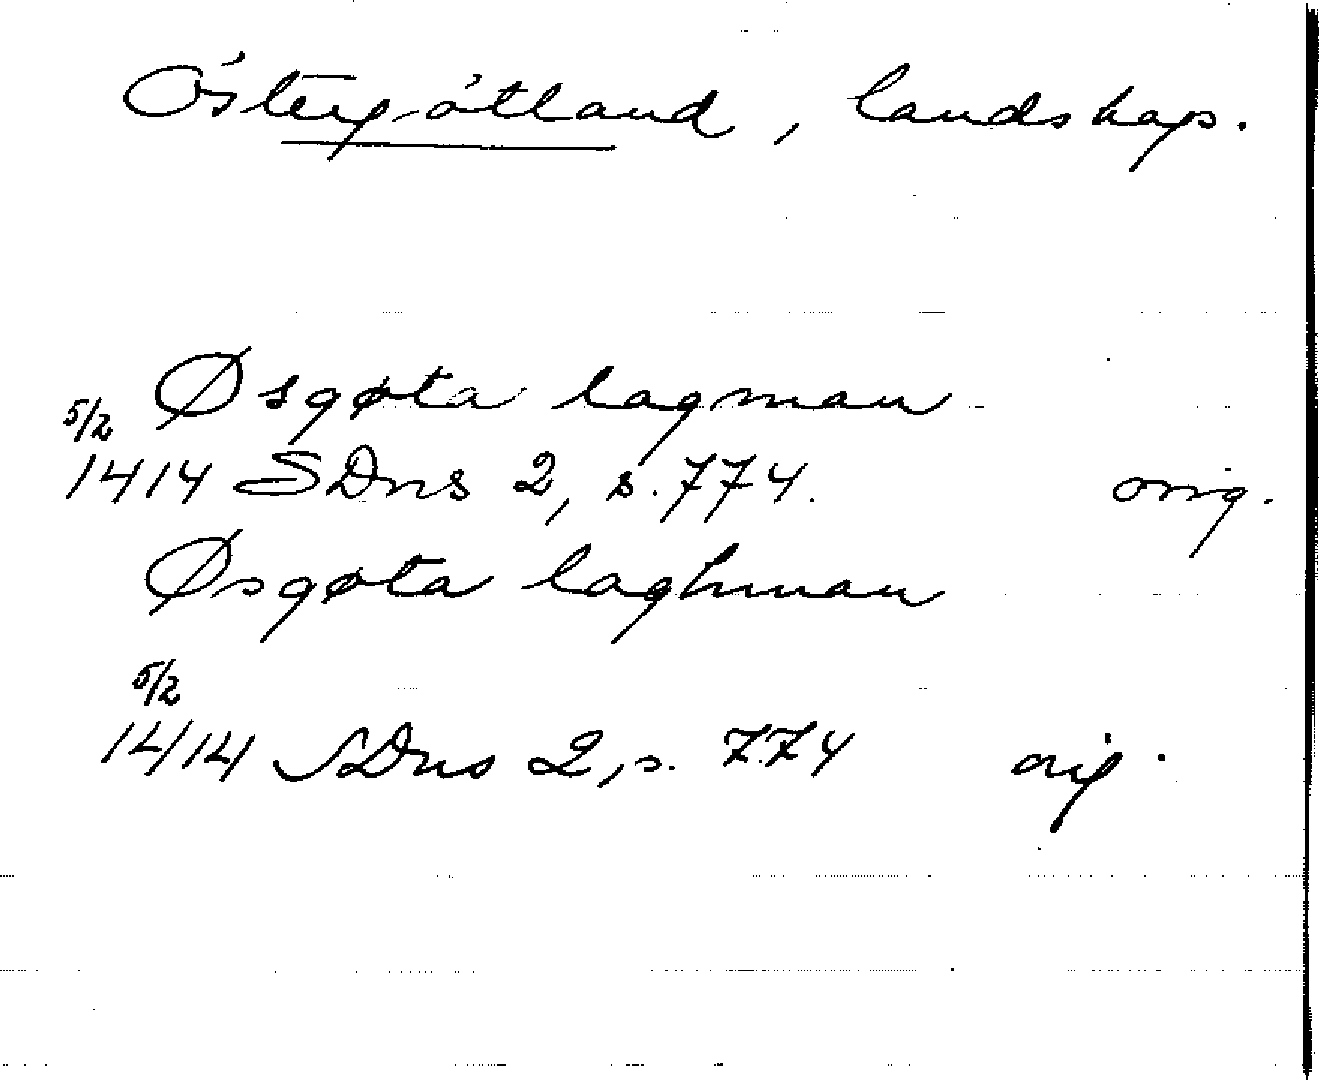 Östergötland, landskap.
Øsgøta lagman
5/2
1414 SDns 2, s. 774. orig.
Øsgøta laghman
5/2
1414 SDns 2, s. 774 orig.